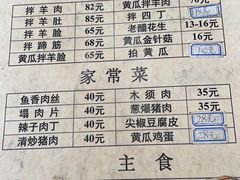 拌羊肉 82元
拌羊肚 85元
拌羊脸 65元
拌蹄筋 65元
黄瓜拌羊脸 65元
黄瓜拌羊肉 70元
拌四丁
老醋花生 13-16元
黄瓜金针菇 16元
拍黄瓜
家常菜
鱼香肉丝 40元
塌肉片 40元
辣子肉丁 40元
清炒猪肉 40元
木须肉 35元
葱爆猪肉 35元
尖椒豆腐皮 28元
黄瓜鸡蛋 28元
主食